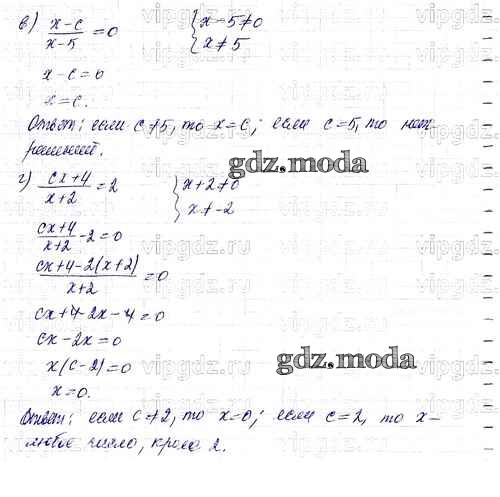 в) x-c/x-5 = 0 { x-5≠0
x≠5
x-c=0
x=c.
Ответ: если c≠5, то x=c; если c=5, то нет
решений.
gdz.moda
г) cx+4/x+2 = 2 { x+2≠0
x≠-2
cx+4/x+2 - 2=0
cx+4-2(x+2)/x+2 = 0
cx+4-2x-4=0
cx-2x=0
x(c-2)=0
gdz.moda
x=0.
Ответ: если c≠2, то x=0; если c=2, то x-
любое число, кроме 2.
vipgdz.ru